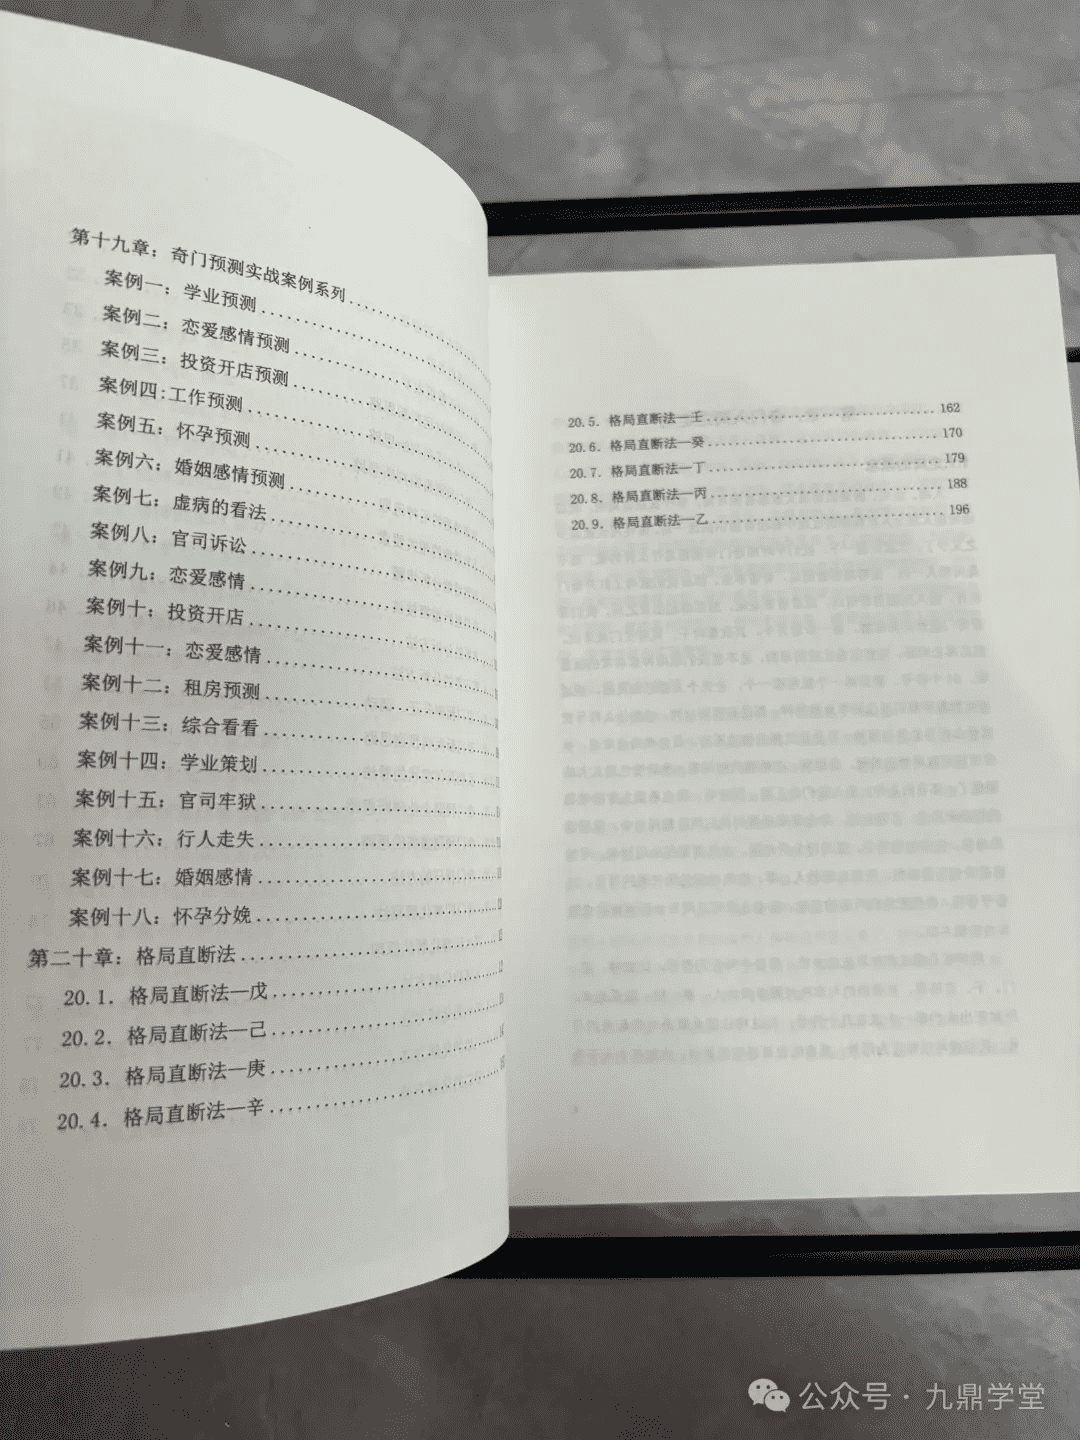 第十九章：奇门预测实战案例系列
案例一：学业预测
案例二：恋爱感情预测
案例三：投资开店预测
案例四:工作预测
案例五：怀孕预测
案例六：婚姻感情预测
案例七：虚病的看法
案例八：官司诉讼
案例九：恋爱感情
案例十：投资开店
案例十一：恋爱感情
案例十二：租房预测
案例十三：综合看看
案例十四：学业策划
案例十五：官司牢狱
案例十六：行人走失
案例十七：婚姻感情
案例十八：怀孕分娩
第二十章：格局直断法
20.1. 格局直断法—戊
20.2. 格局直断法—己
20.3. 格局直断法—庚
20.4. 格局直断法—辛
20.5. 格局直断法—壬 162
20.6. 格局直断法—癸 170
20.7. 格局直断法—丁 179
20.8. 格局直断法—丙 188
20.9. 格局直断法—乙 196
公众号·九鼎学堂